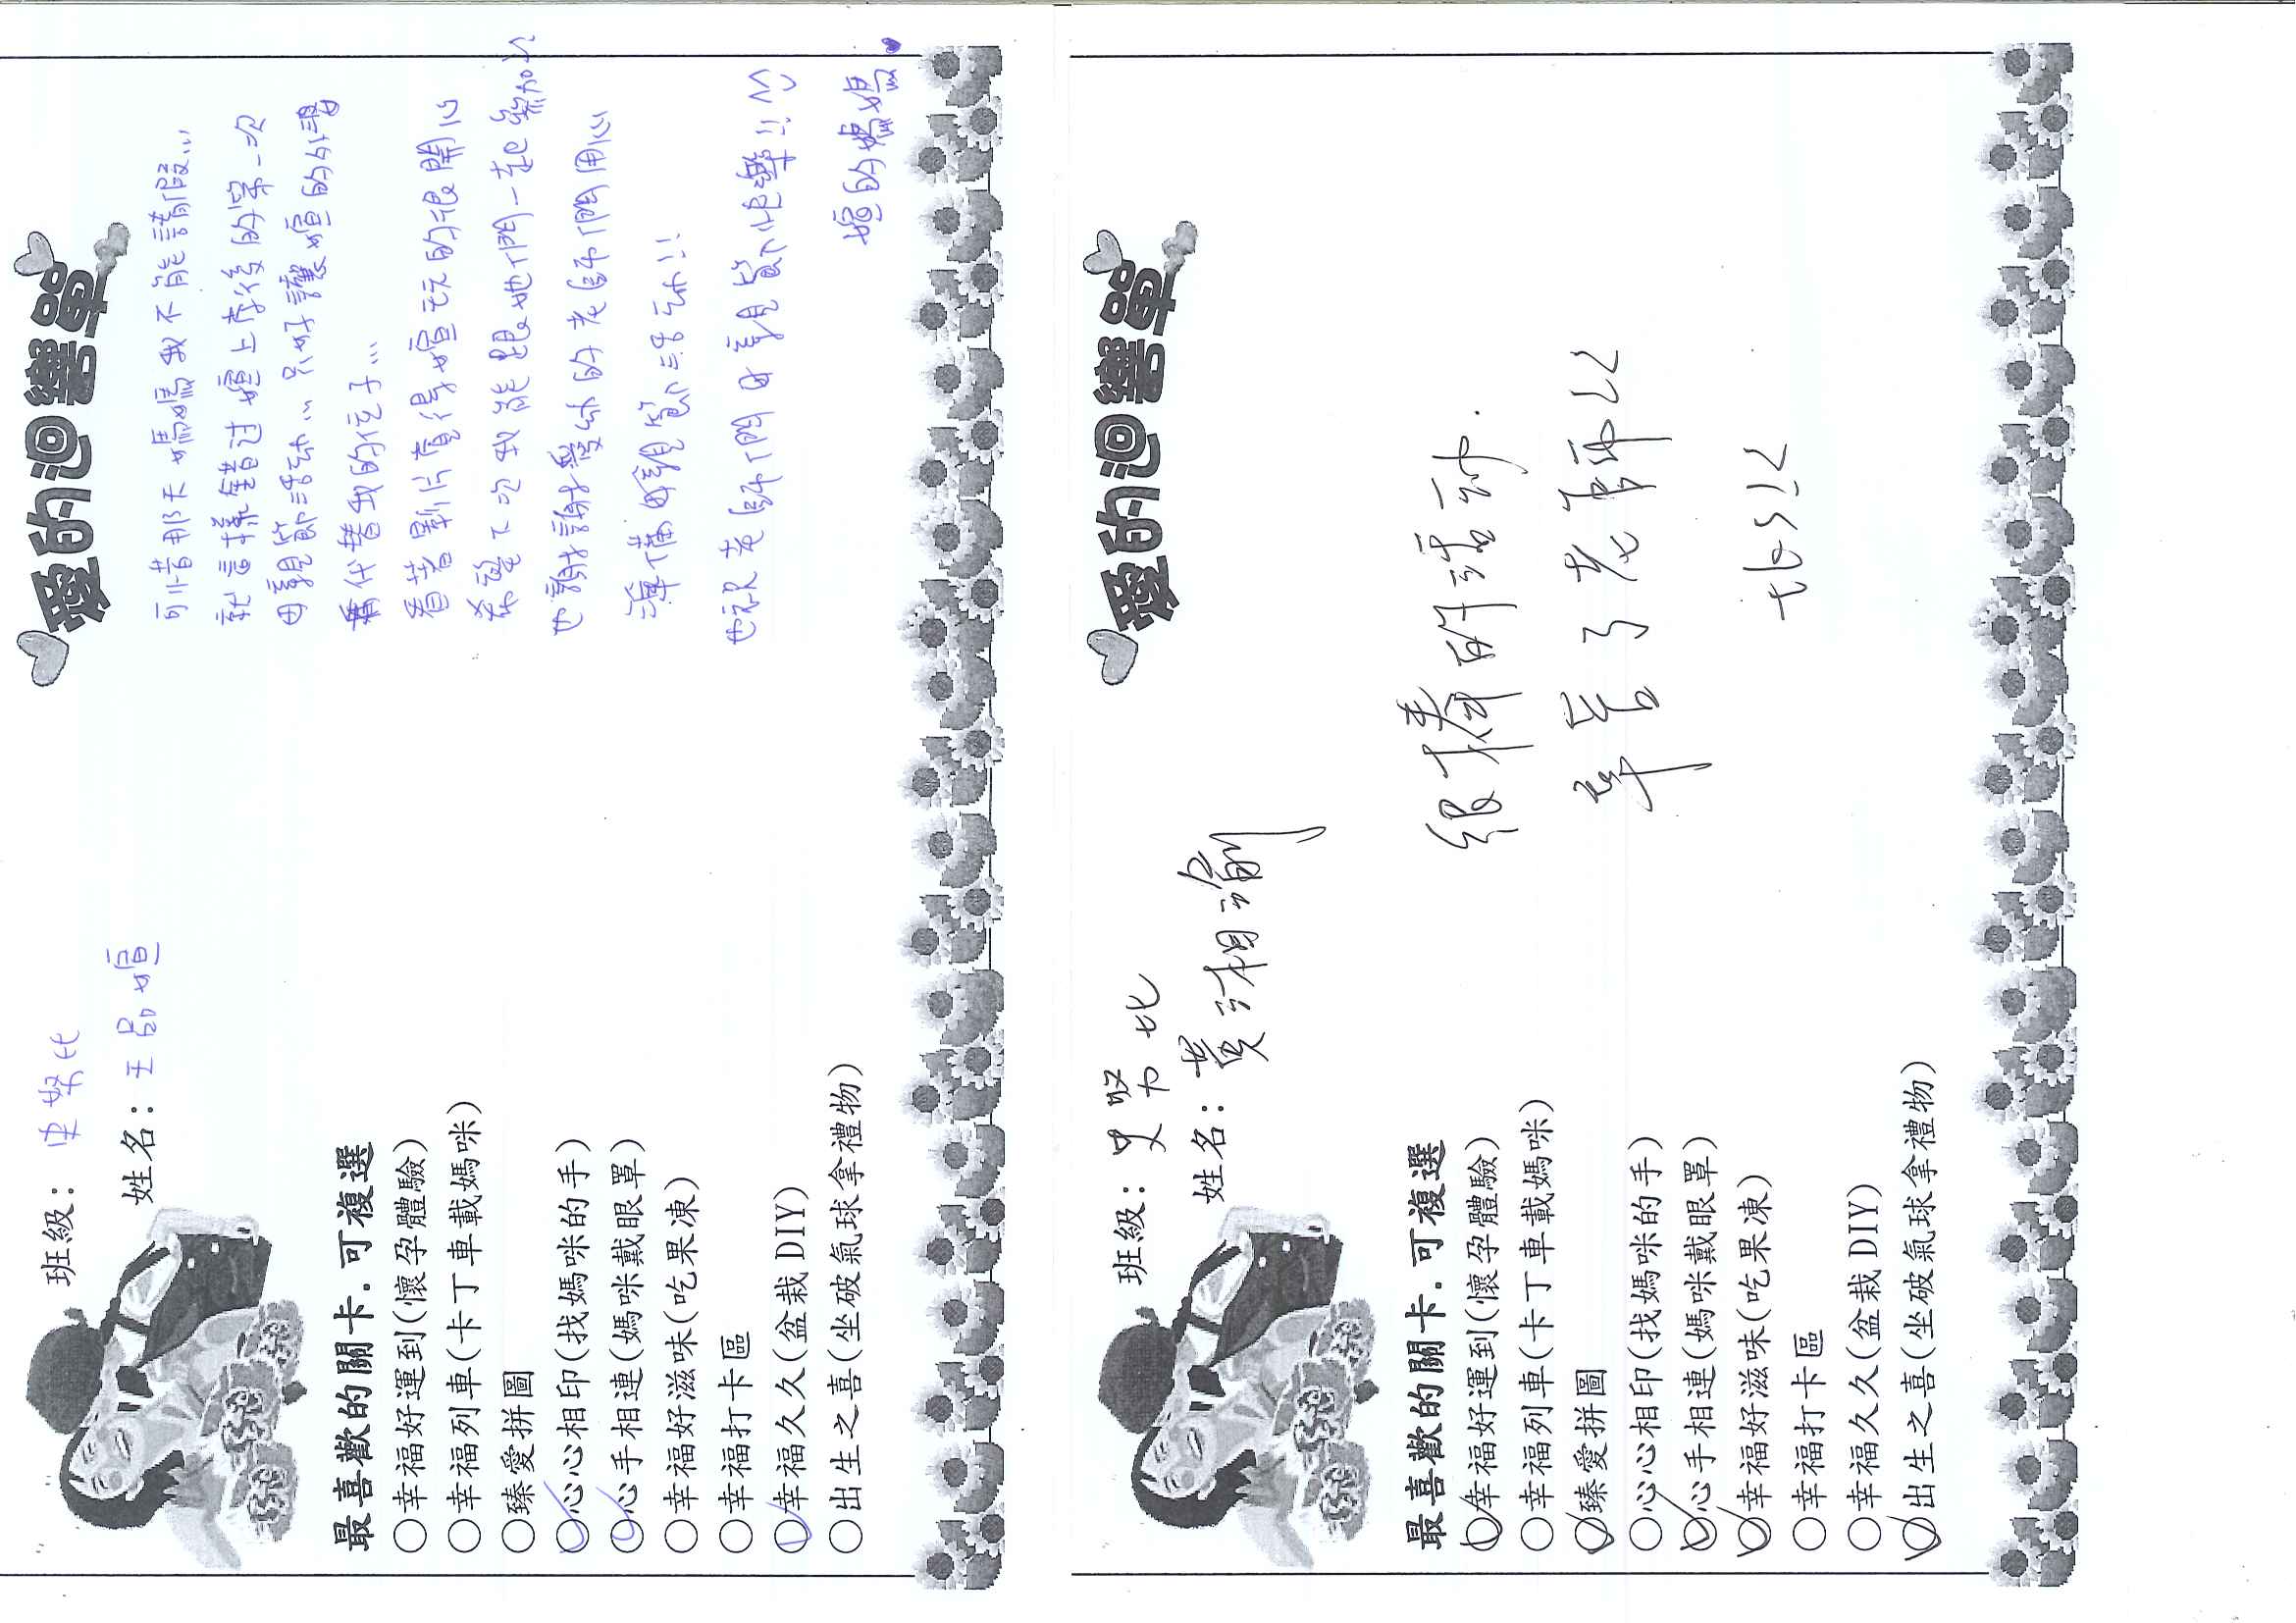 愛的迴響單
班級：史努比
姓名：王品媗
最喜歡的關卡．可複選
○幸福好運到(懷孕體驗)
○幸福列車(卡丁車載媽咪)
○臻愛拼圖
○心心相印(找媽咪的手)
○心手相連(媽咪戴眼罩)
○幸福好滋味(吃果凍)
○幸福打卡區
○幸福久久(盆栽DIY)
○出生之喜(坐破氣球拿禮物)
可惜那天媽媽我不能請假...
就這樣錯过媗上学後的第一次
母親節活动... 只好讓媗的外婆
代替我的位子...
看著影片覺得媗玩的很開心
希望下次我能跟她们一起參加
也謝謝愛幼的老師们用心
準備母親節活动!!
也祝老師们母親節快樂!!
媗的媽媽
愛的迴響單
班級：史努比
姓名：黃湘瑜
最喜歡的關卡．可複選
○幸福好運到(懷孕體驗)
○幸福列車(卡丁車載媽咪)
○臻愛拼圖
○心心相印(找媽咪的手)
○心手相連(媽咪戴眼罩)
○幸福好滋味(吃果凍)
○幸福打卡區
○幸福久久(盆栽DIY)
○出生之喜(坐破氣球拿禮物)
很棒的活动.
辛苦了老師